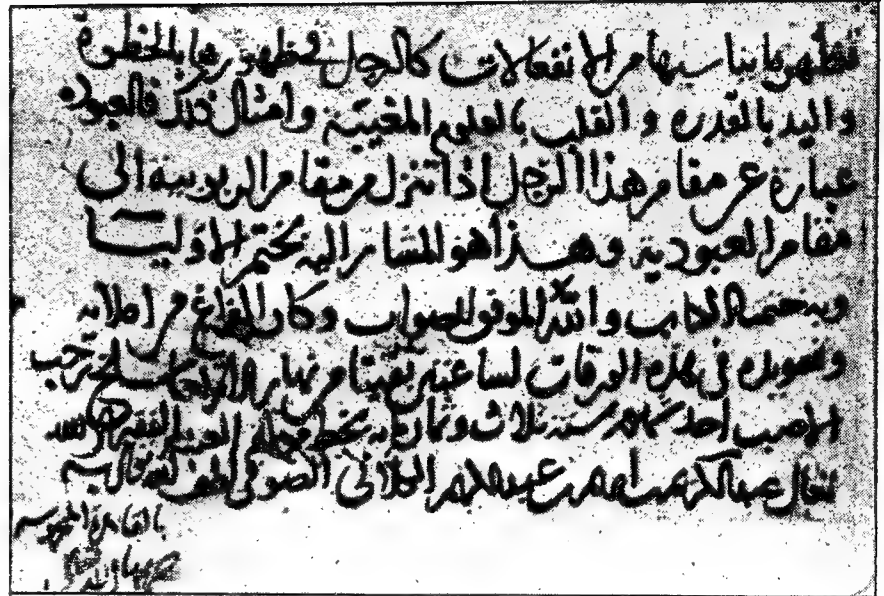 فتظهر بما يناسبها من الانفعالات كالرجل في ظهوره بالخطوة
واليد بالقدرة والقلب بالعلوم المغيبة وامثال ذلك فالعبودة
عبارة عن مقام هذا الرجل اذا تنزل من مقام الربوبية الى
مقام العبودية وهذا هو المشار اليه بختم الاوليا
وبه ختمنا الكتاب والله الموفق للصواب وكان الفراغ من املائه
وتسويده في هذه الورقات لساعتين بقيتا من نهار الاربعا سلخ رجب
الاصب احد شهور سنة ثلاث وثمانمايه بخط العبد الفقير الى الله
تعالى عبد الكريم بن ابراهيم بن عبد الكريم الكلاني الصوفي لطف الله به
بالقاهرة المحروسة